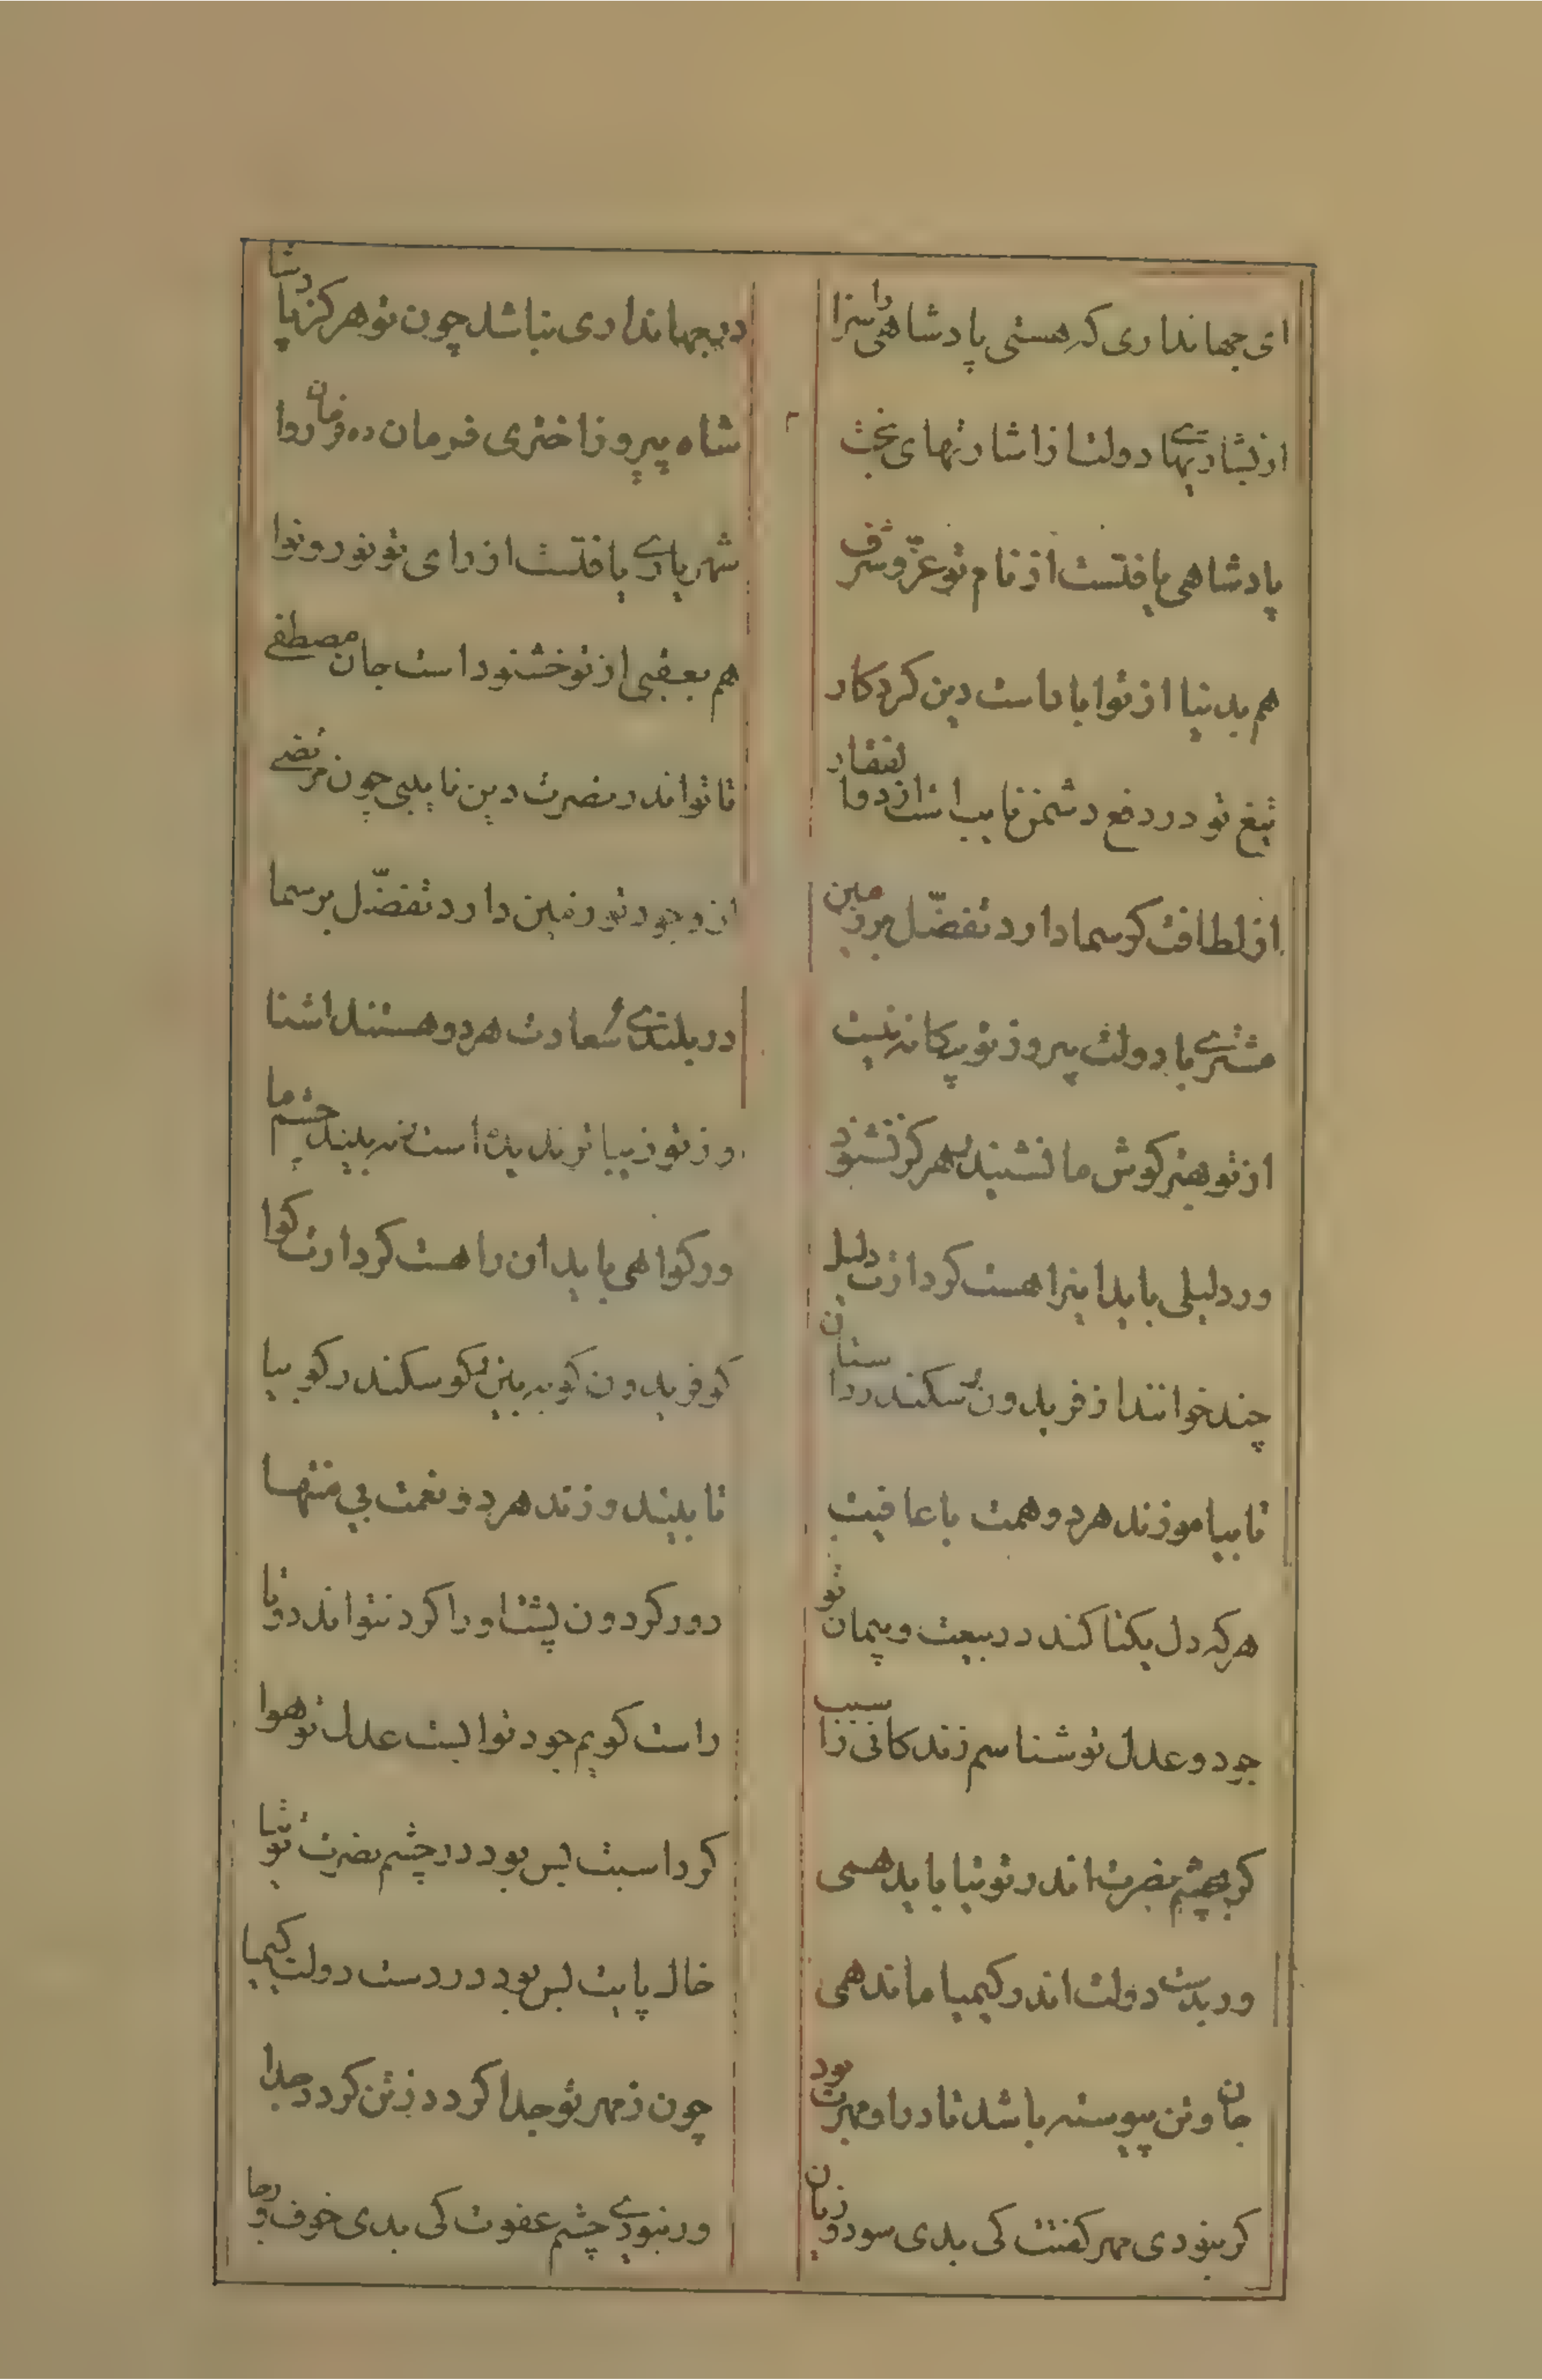 ای جهانداری که هستی پادشاهی را سزا
در جهانداری نباشد چون تو هرکز پادشا
از بشارتهای دولت از اشارتهای بخت
شاه پیروز اختری فرمان ده و فرمان روا
پادشاهی یافتست از نام تو عزّ و شرف
شهریاری یافتست از رای تو نور و نوا
هم بدنیا از تو اباداست دین کردکار
هم بعقبی از تو خشنود است جان مصطفی
تیغ تو در دفع دشمن نایب است از ذوالفقار
تا تو اندر نصرت دین نایبی چون مرتضی
از لطافت کر سما دارد تفضّل بر زمین
از وجود تو زمین دارد تفضّل بر سما
مشتری با دولت پیروز تو بیکانه نیست
در بلندی و سعادت هر دو هستند اشنا
از تو بهتر کوش ما نشنید و هرکز نشنود
وز تو زیباتر ندیده است و نه بیند چشم ما
ور دلیلی باید اینرا هست کردارت دلیل
ور کواهی باید ان را هست کردارت کوا
چند خوانند از فریدون و سکندر داستان
کو فریدون کو به بین و کو سکندر کو بیا
تا بیاموزند هر دو همت با عافیت
تا ببینند و زند هر دو نعمت بی منتها
هرکه دل یکتا کند در بیعت و پیمان تو
دور کردون پشت او را کرد نتواند دوتا
جود و عدل تو شناسم زندکانی را سبب
راست کویم جود تو ابست عدل تو هوا
کر بچشم نصرت اندر توتیا باید همی
کرد اسبت بس بود در چشم نصرت توتیا
ور بدست دولت اندر کیمیا ماند همی
خاک پایت بس بود در دست دولت کیمیا
جان و تن پیوسته باشد تا درا و مهرت بود
چون ز مهر تو جدا کردد ز تن کردد جدا
کر نبودی مهر کفتت کی بدی سود و زیان
ور نبودی چشم عفوت کی بدی خوف و رجا